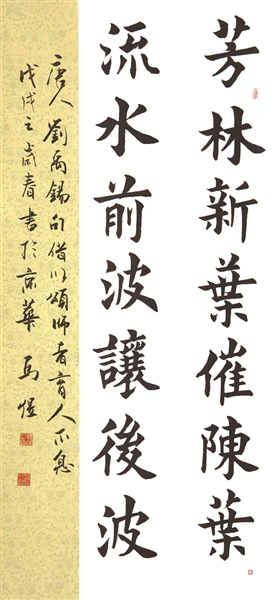 芳林新葉催陳葉
流水前波讓後波
唐人劉禹錫句借以頌師者育人不息
戊戌之歲春書於京華馬煜